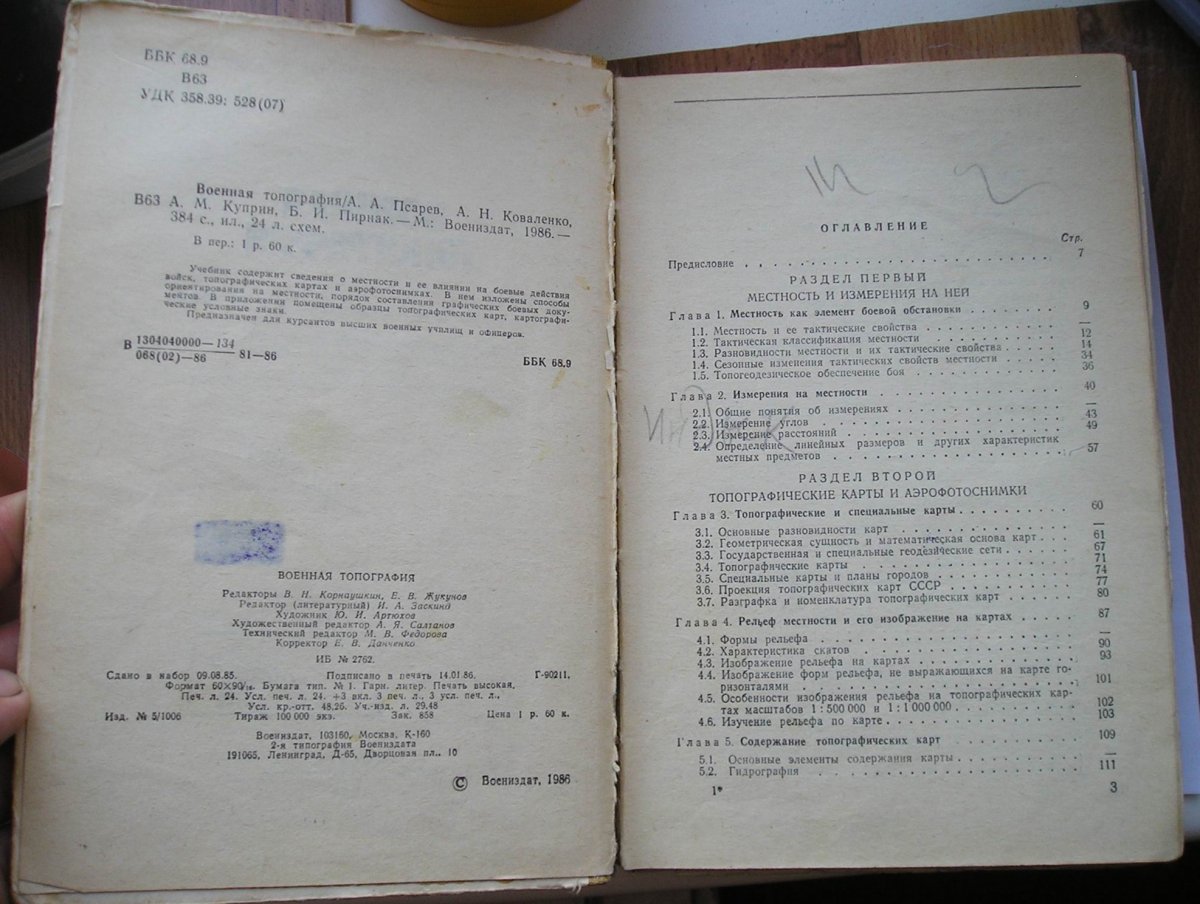 ББК 68.9
В63
УДК 358.39: 528(07)
Военная топография/А. А. Псарев, А. Н. Коваленко,
В63 А. М. Куприн, Б. И. Пирнак. — М.: Воениздат, 1986. —
384 с., ил., 24 л. схем.
В пер.: 1 р. 60 к.
Учебник содержит сведения о местности и ее влиянии на боевые действия
войск, топографических картах и аэрофотоснимках. В нем изложены способы
ориентирования на местности, порядок составления графических боевых доку-
ментов. В приложении помещены образцы топографических карт, картографи-
ческие условные знаки.
Предназначен для курсантов высших военных училищ и офицеров.
В 1304040000—134
068(02)—86 81—86
ББК 68.9
ВОЕННАЯ ТОПОГРАФИЯ
Редакторы В. Н. Корнаушкин, Е. В. Жукунов
Редактор (литературный) И. А. Заскинд
Художник Ю. И. Артюхов
Художественный редактор А. Я. Салтанов
Технический редактор М. В. Федорова
Корректор Е. В. Данченко
ИБ № 2762.
Сдано в набор 09.08.85. Подписано в печать 14.01.86. Г-90211.
Формат 60×90/16. Бумага тип. № 1. Гарн. литер. Печать высокая.
Печ. л. 24. Усл. печ. л. 24. +3 вкл. 3 печ. л., 3 усл. печ. л..
Усл. кр.-отт. 48,26. Уч.-изд. л. 29.48
Изд. № 5/1006 Тираж 100 000 экз. Зак. 858 Цена 1 р. 60 к.
Воениздат, 103160, Москва, К-160
2-я типография Воениздата
191065, Ленинград, Д-65, Дворцовая пл., 10
© Воениздат, 1986
ОГЛАВЛЕНИЕ
Стр.
Предисловие . . . . . 7
РАЗДЕЛ ПЕРВЫЙ
МЕСТНОСТЬ И ИЗМЕРЕНИЯ НА НЕЙ
Глава 1. Местность как элемент боевой обстановки . . . . . 9
1.1. Местность и ее тактические свойства . . . . . —
1.2. Тактическая классификация местности . . . . . 12
1.3. Разновидности местности и их тактические свойства . . . . . 14
1.4. Сезонные изменения тактических свойств местности . . . . . 34
1.5. Топогеодезическое обеспечение боя . . . . . 36
Глава 2. Измерения на местности . . . . . 40
2.1. Общие понятия об измерениях . . . . . —
2.2. Измерение углов . . . . . 43
2.3. Измерение расстояний . . . . . 49
2.4. Определение линейных размеров и других характеристик
местных предметов . . . . . 57
РАЗДЕЛ ВТОРОЙ
ТОПОГРАФИЧЕСКИЕ КАРТЫ И АЭРОФОТОСНИМКИ
Глава 3. Топографические и специальные карты . . . . . 60
3.1. Основные разновидности карт . . . . . —
3.2. Геометрическая сущность и математическая основа карт . . . . . 61
3.3. Государственная и специальные геодезические сети . . . . . 67
3.4. Топографические карты . . . . . 71
3.5. Специальные карты и планы городов . . . . . 74
3.6. Проекция топографических карт СССР . . . . . 77
3.7. Разграфка и номенклатура топографических карт . . . . . 80
Глава 4. Рельеф местности и его изображение на картах . . . . . 87
4.1. Формы рельефа . . . . . —
4.2. Характеристика скатов . . . . . 90
4.3. Изображение рельефа на картах . . . . . 93
4.4. Изображение форм рельефа, не выражающихся на карте го-
ризонталями . . . . . 101
4.5. Особенности изображения рельефа на топографических кар-
тах масштабов 1:500 000 и 1:1 000 000 . . . . . 102
4.6. Изучение рельефа по карте . . . . . 103
Глава 5. Содержание топографических карт . . . . . 109
5.1. Основные элементы содержания карты . . . . . —
5.2. Гидрография . . . . . 111
1* 3